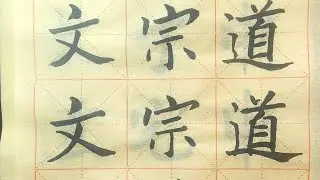 文宗道
文宗道